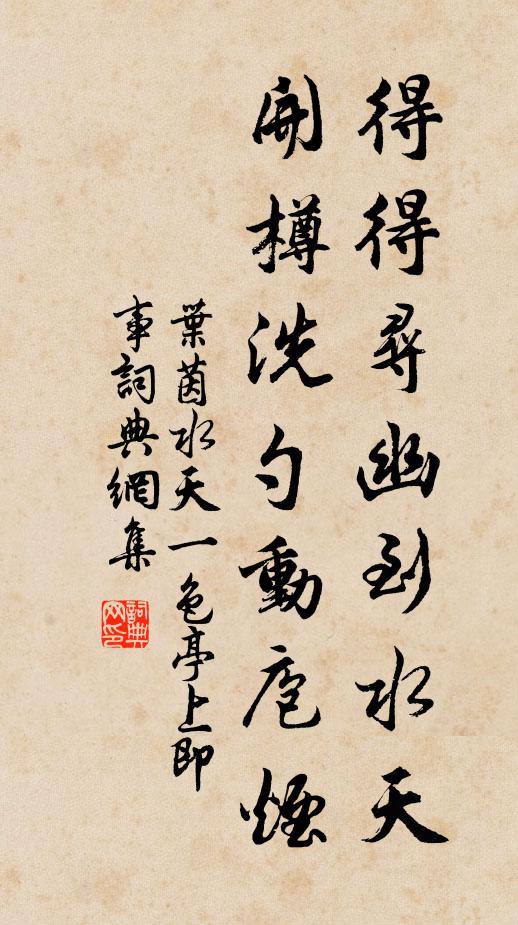 得得尋幽到水天
開樽洗勺動庖煙
葉茵水天一色亭上即
事詞典網集
詞典
网印